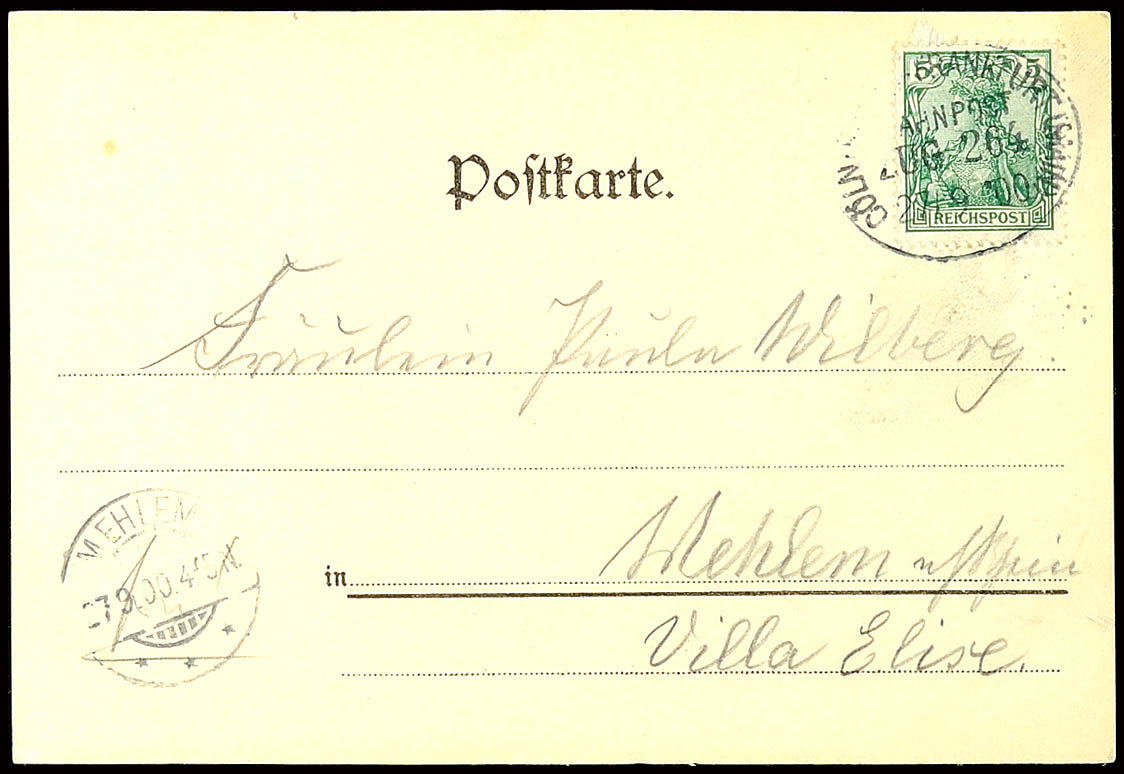 5 5
CÖLN FRANKFURT (MAIN)
BAHNPOST
ZUG 264
27 9 00
REICHSPOST
Postkarte.
Fräulein Paula Wilberg.
MEHLEM
27 9. 00. 4-5 N.
in Mehlem a/Rhein
Villa Elise.